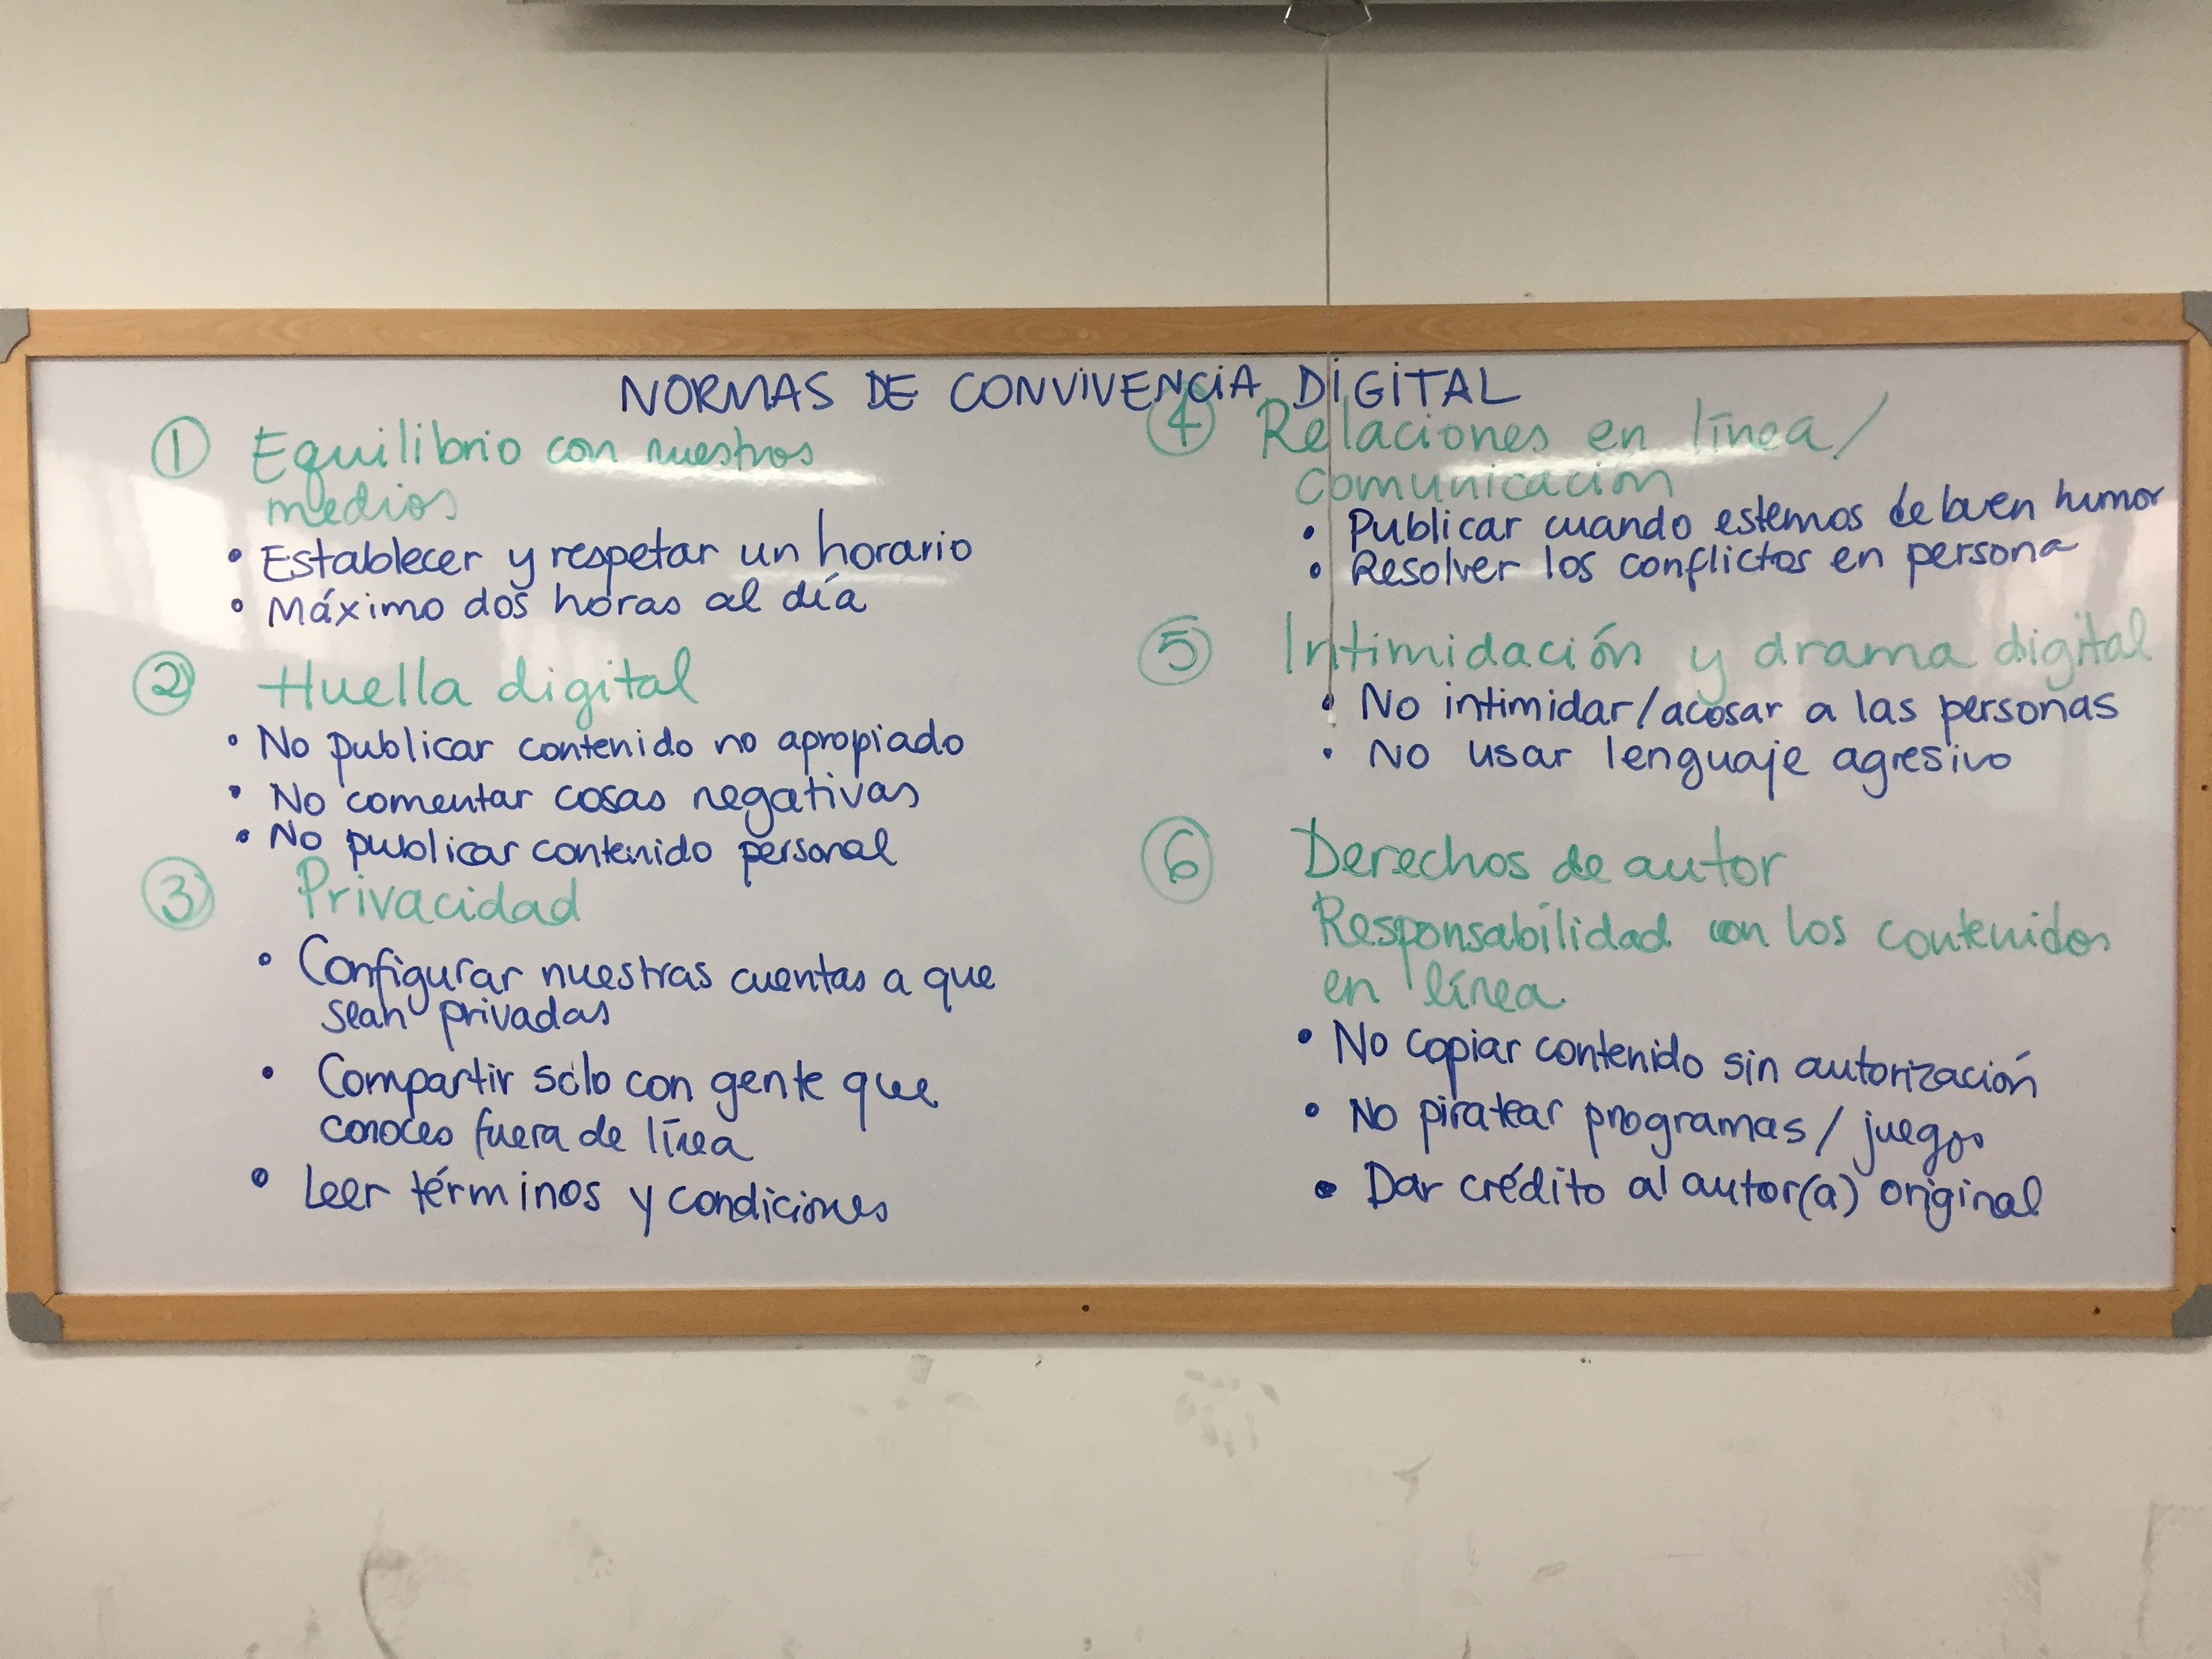 NORMAS DE CONVIVENCIA DIGITAL
① Equilibrio con nuestros
medios
• Establecer y respetar un horario
• Máximo dos horas al día
② Huella digital
• No publicar contenido no apropiado
• No comentar cosas negativas
• No publicar contenido personal
③ Privacidad
• Configurar nuestras cuentas a que
sean privadas
• Compartir sólo con gente que
conoces fuera de línea
• Leer términos y condiciones
④ Relaciones en línea/
comunicación
• Publicar cuando estemos de buen humor
• Resolver los conflictos en persona
⑤ Intimidación y drama digital
• No intimidar/acosar a las personas
• No usar lenguaje agresivo
⑥ Derechos de autor
Responsabilidad con los contenidos
en línea
• No copiar contenido sin autorización
• No piratear programas/juegos
• Dar crédito al autor(a) original